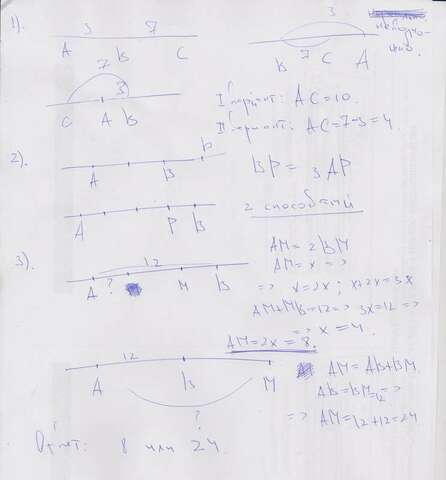 1).
3 7
A B C
3
B 7 C A
7
3
C A B
I вариант: AC=10.
II вариант: AC=7-3=4.
2).
A B P
A P B
BP = 3AP
2 способами
3).
12
A ? M B
AM=2BM
AM=x =>
=> x=2x; x+2x=3x
AM+MB=12=>3x=12 =>
=> x=4.
AM=2x=8.
12
A B M
?
AM=AB+BM
AB=BM=12 =>
=> AM=12+12=24
Ответ: 8 или 24.